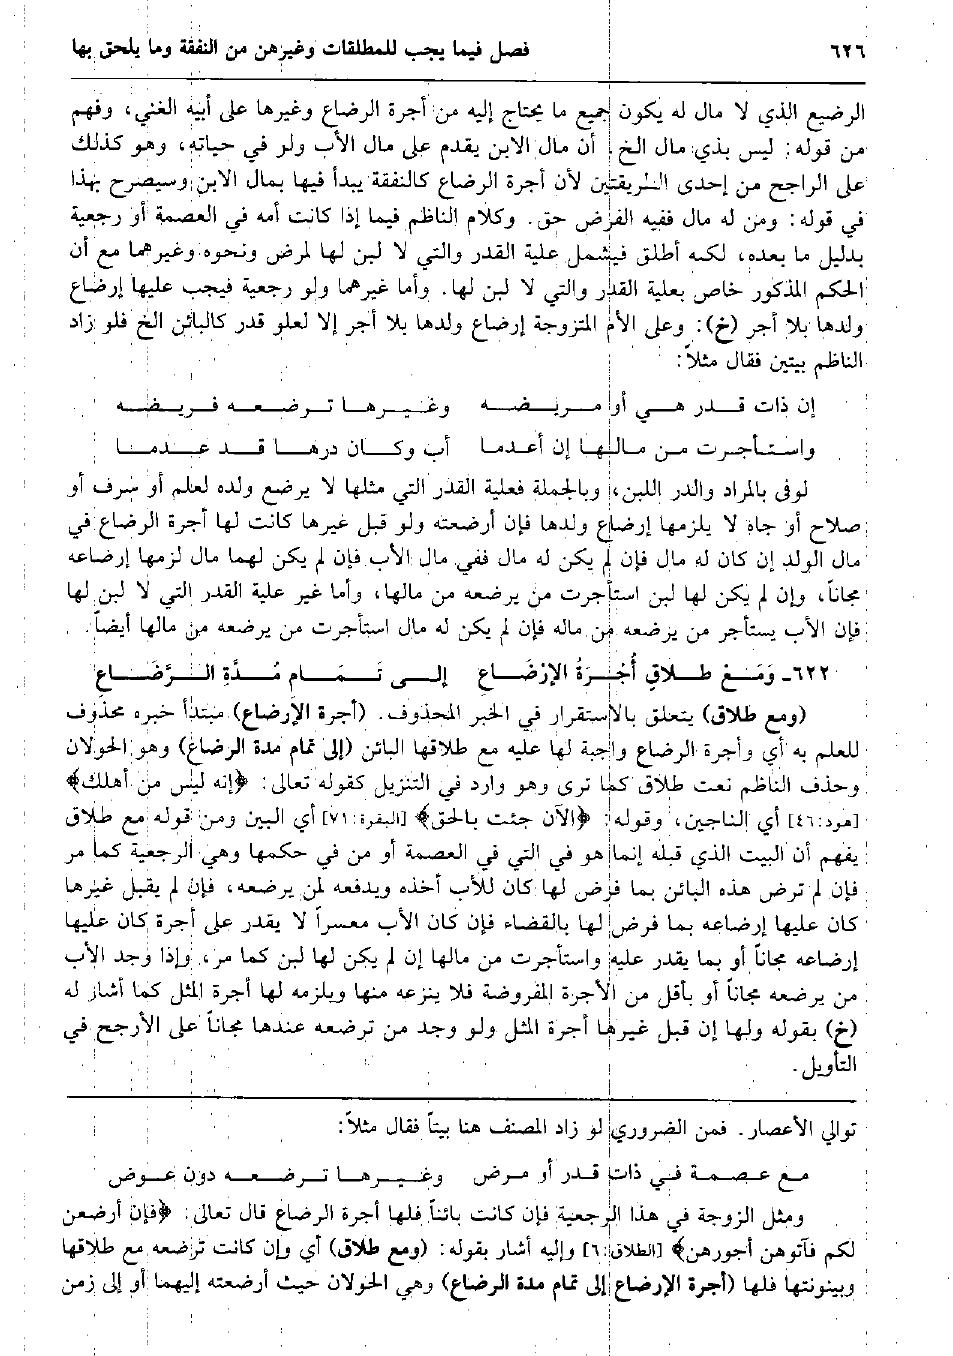 ٦٢٦ فصل فيما يجب للمطلقات وغيرهن من النفقة وما يلحق بها
الرضيع الذي لا مال له يكون جميع ما يحتاج إليه من أجرة الرضاع وغيرها على أبيه الغني، وفهم
من قوله: ليس بذي مال الخ. أن مال الابن يقدم على مال الأب ولو في حياته، وهو كذلك
على الراجح من إحدى الطريقتين لأن أجرة الرضاع كالنفقة يبدأ فيها بمال الابن وسيصرح بهذا
في قوله: ومن له مال ففيه الفرض حق. وكلام الناظم فيما إذا كانت أمه في العصمة أو رجعية
بدليل ما بعده، لكنه أطلق فيشمل علية القدر والتي لا لبن لها لمرض ونحوه وغيرهما مع أن
الحكم المذكور خاص بعلية القدر والتي لا لبن لها. وأما غيرهما ولو رجعية فيجب عليها إرضاع
ولدها بلا أجر (خ): وعلى الأم المتزوجة إرضاع ولدها بلا أجر إلا لعلو قدر كالبائن الخ فلو زاد
الناظم بيتين فقال مثلاً:
إن ذات قدر هي أو مريضه وغيرها ترضعه فريضه
واستأجرت من مالها إن أعدما أب وكان درها قد عدمنا
لوفى بالمراد والدر اللبن، وبالجملة فعلية القدر التي مثلها لا يرضع ولده لعلم أو شرف أو
صلاح أو جاه لا يلزمها إرضاع ولدها فإن أرضعته ولو قبل غيرها كانت لها أجرة الرضاع في
مال الولد إن كان له مال فإن لم يكن له مال ففي مال الأب فإن لم يكن لهما مال لزمها إرضاعه
مجاناً، وإن لم يكن لها لبن استأجرت من يرضعه من مالها، وأما غير علية القدر التي لا لبن لها
فإن الأب يستأجر من يرضعه من ماله فإن لم يكن له مال استأجرت من يرضعه من مالها أيضاً.
٦٢٢- وَمَعْ طلاقٍ أُجْرَةُ الإرْضَاعِ إلى تَمَامِ مُدَّةِ الرَّضَاعِ
(ومع طلاق) يتعلق بالاستقرار في الخبر المحذوف. (أجرة الإرضاع) مبتدأ خبره محذوف
للعلم به أي وأجرة الرضاع واجبة لها عليه مع طلاقها البائن (إلى تمام مدة الرضاع) وهو الحولان
وحذف الناظم نعت طلاق كما ترى وهو وارد في التنزيل كقوله تعالى: ﴿إنه ليس من أهلك﴾
[هود:٤٦] أي الناجين، وقوله: ﴿الآن جئت بالحق﴾ [البقرة:٧١] أي البين ومن قوله مع طلاق
يفهم أن البيت الذي قبله إنما هو في التي في العصمة أو من في حكمها وهي الرجعية كما مر
فإن لم ترض هذه البائن بما فرض لها كان للأب أخذه ويدفعه لمن يرضعه، فإن لم يقبل غيرها
كان عليها إرضاعه بما فرض لها بالقضاء فإن كان الأب معسراً لا يقدر على أجرة كان عليها
إرضاعه مجاناً أو بما يقدر عليه واستأجرت من مالها إن لم يكن لها لبن كما مر، وإذا وجد الأب
من يرضعه مجاناً أو بأقل من الأجرة المفروضة فلا ينزعه منها ويلزمه لها أجرة المثل كما أشار له
(خ) بقوله ولها إن قبل غيرها أجرة المثل ولو وجد من ترضعه عندها مجاناً على الأرجح في
التأويل.
توالي الأعصار. فمن الضروري لو زاد المصنف هنا بيتاً فقال مثلاً:
مع عصمة في ذات قدر أو مرض وغيرها ترضعه دون عوض
ومثل الزوجة في هذا الرجعية فإن كانت بائناً فلها أجرة الرضاع قال تعالى: ﴿فإن أرضعن
لكم فآتوهن أجورهن﴾ [الطلاق:٦] وإليه أشار بقوله: (ومع طلاق) أي وإن كانت ترضعه مع طلاقها
وبينونتها فلها (أجرة الإرضاع إلى تمام مدة الرضاع) وهي الحولان حيث أرضعته إليهما أو إلى زمن